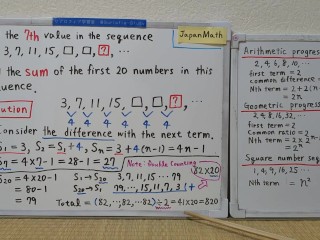 the 7th value in the sequence
3, 7, 11, 15, □, □, ?, ...
the sum of the first 20 numbers in this
quence.
JapanMath
ution
3, 7, 11, 15, □, □, ?, ...
4 4 4 4 4 4
Consider the difference with the next term.
S₁ = 3, S₂ = S₁+4, Sn = 3+4(n-1) = 4n-1
= 4×7-1 = 28-1 = 27
Note: Double Counting
S₂₀ = 4×20-1
= 80-1
= 79
S₁→S₂₀ 3, 7, 11, 15 ... 79
S₂₀→S₁ 79, ..., 15, 11, 7, 3 (+
(82×20)
Total = (82, ..., 82)÷2 = 41×20 = 820
Arithmetic progress
2, 4, 6, 8, 10, ...
first term = 2
common
Nth term = 2+2(n
= 2n
Geometric progress
2, 4, 8, 16, 32, ...
first term = 2
Common ratio = 2
Nth term = 2×2
= 2ⁿ
Square number seq
1, 4, 9, 16, 25, ...
Nth term = n²